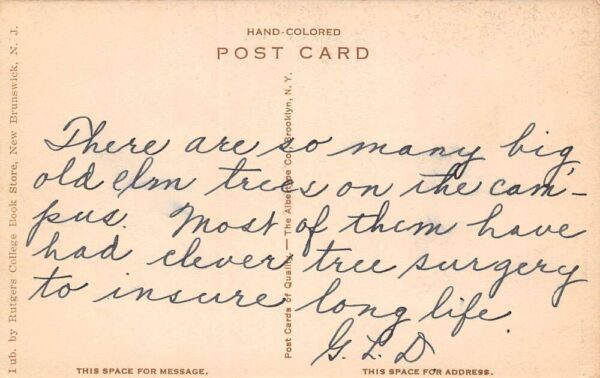 HAND-COLORED
POST CARD
Pub. by Rutgers College Book Store, New Brunswick, N. J.
Post Cards of Quality — The Albertype Co., Brooklyn, N. Y.
There are so many big
old elm trees on the cam-
pus. Most of them have
had clever tree surgery
to insure long life.
G. L. D.
THIS SPACE FOR MESSAGE.
THIS SPACE FOR ADDRESS.